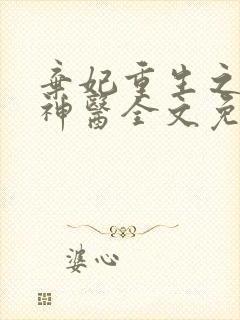 棄妃重生之
神醫全文免
婆心